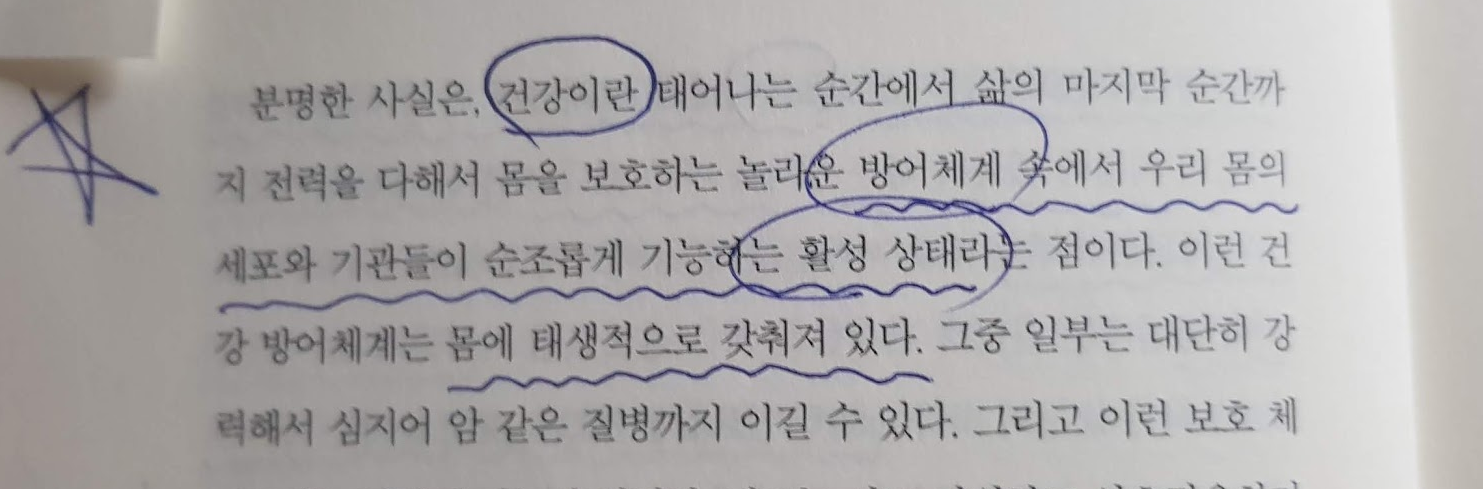 분명한 사실은, 건강이란 태어나는 순간에서 삶의 마지막 순간까
지 전력을 다해서 몸을 보호하는 놀라운 방어체계 속에서 우리 몸의
세포와 기관들이 순조롭게 기능하는 활성 상태라는 점이다. 이런 건
강 방어체계는 몸에 태생적으로 갖춰져 있다. 그중 일부는 대단히 강
력해서 심지어 암 같은 질병까지 이길 수 있다. 그리고 이런 보호 체